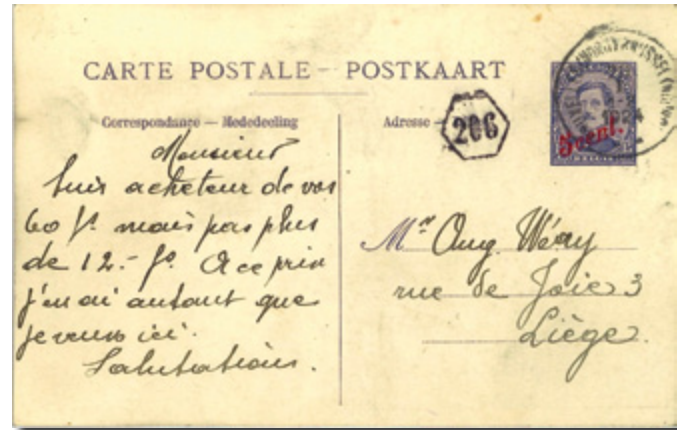 CARTE POSTALE — POSTKAART
Correspondance — Mededeeling
Adresse —
206
5 cent.
Monsieur
Suis acheteur de vos
60 fs. mais pas plus
de 12.- fs. A ce prix
j'en ai autant que
je veux ici.
Salutations.
Mr. Aug. Wéry
rue de Joie 3
Liège.